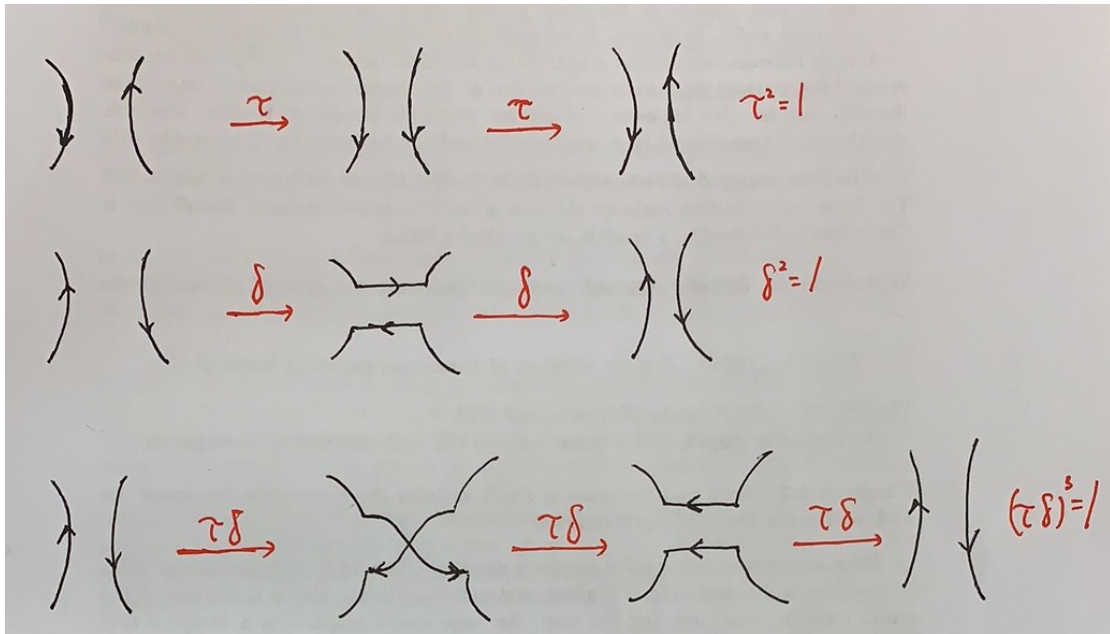 τ τ τ²=1
δ δ δ²=1
τδ τδ τδ (τδ)³=1